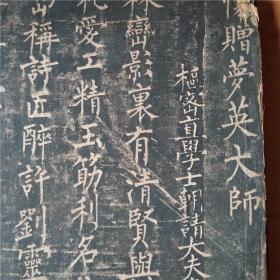 贈夢英大師
樞密直學士朝請大夫
林巒影裏有清賢與
愛工精玉筯利名
稱詩匠醉許劉靈